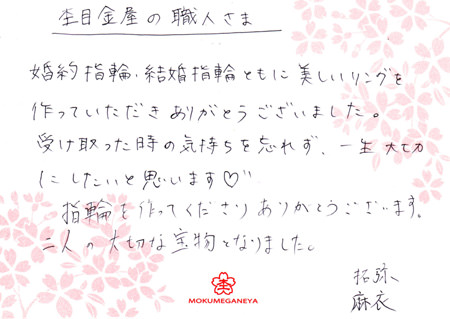 杢目金屋の職人さま
婚約指輪・結婚指輪ともに美しいリングを
作っていただきありがとうございました。
受け取った時の気持ちを忘れず、一生大切
にしたいと思います♡
指輪を作ってくださりありがとうございます。
二人の大切な宝物となりました。
杢
MOKUMEGANEYA
拓弥
麻衣